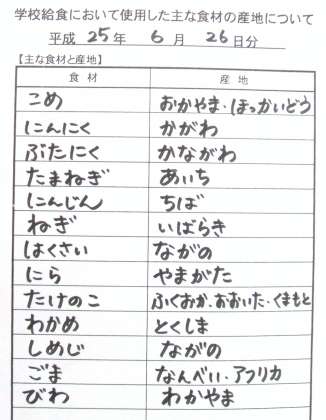 学校給食において使用した主な食材の産地について
平成 25年 6月 26日分
【主な食材と産地】
食材 産地
こめ おかやま・ほっかいどう
にんにく かがわ
ぶたにく かながわ
たまねぎ あいち
にんじん ちば
ねぎ いばらき
はくさい ながの
にら やまがた
たけのこ ふくおか、おおいた・くまもと
わかめ とくしま
しめじ ながの
ごま なんべい・アフリカ
びわ わかやま